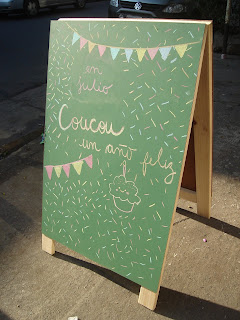 en
julio
Coucou
un año feliz